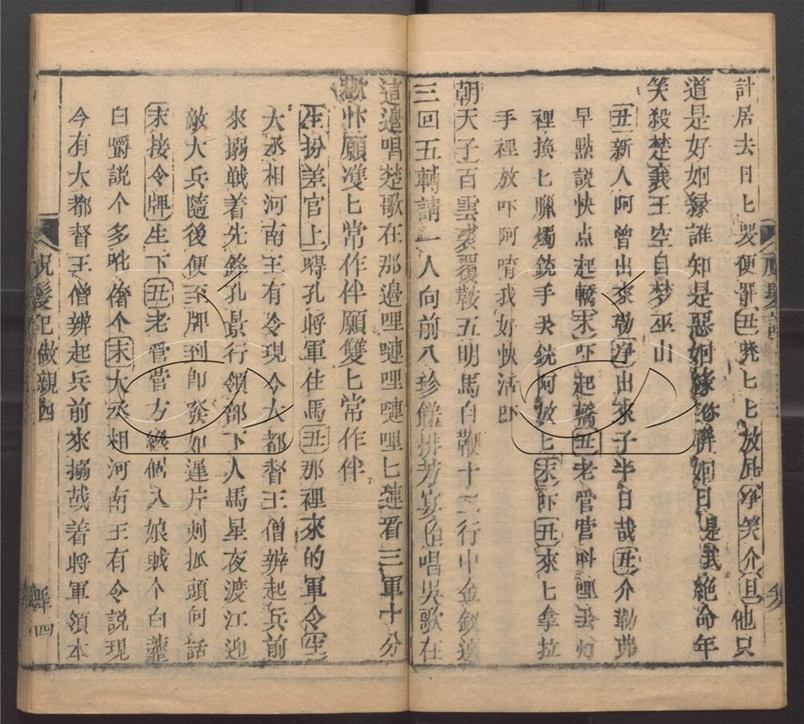 計居去日匕哭便肝丑凳匕匕放屁净笑介旦他只
道是好姻緣誰知是惡姻緣你辭姻日是我絕命年
笑殺楚襄王空自梦巫山
丑新人阿曾出來勒净出來子半日哉丑介勒弗
早點說快点起轎末吓起轎丑老管营叫哩丟灯
裡換匕臘燭銃手丟銃阿放匕末吓丑來匕拿拉
手裡放吓阿唷我好快活吓
朝天子百雲裘覆鞍五明馬白鞭十二行中金釵
三回五轉請一人向前八珍饈排芳宴唱吳歌在
這邊唱楚歌在那邊哩嗹哩嗹哩匕嗹看三軍十分
歡忭願雙匕常作伴願雙匕常作伴
生扮差官上嘚孔將軍住馬丑那裡來的軍令生
大丞相河南王有令現今大都督王僧辨起兵前
來搦戰着先鋒孔景行領部下人馬星夜渡江迎
敵大兵隨後便至牌到即發如違片刻抓頭何話
末接令牌生下丑老管营方纔個入娘戝个白
白嚼說个多吪个末大丞相河南王有令說現
今有大都督王僧辨起兵前來搦战着將軍領本
祝髮記做親四
四